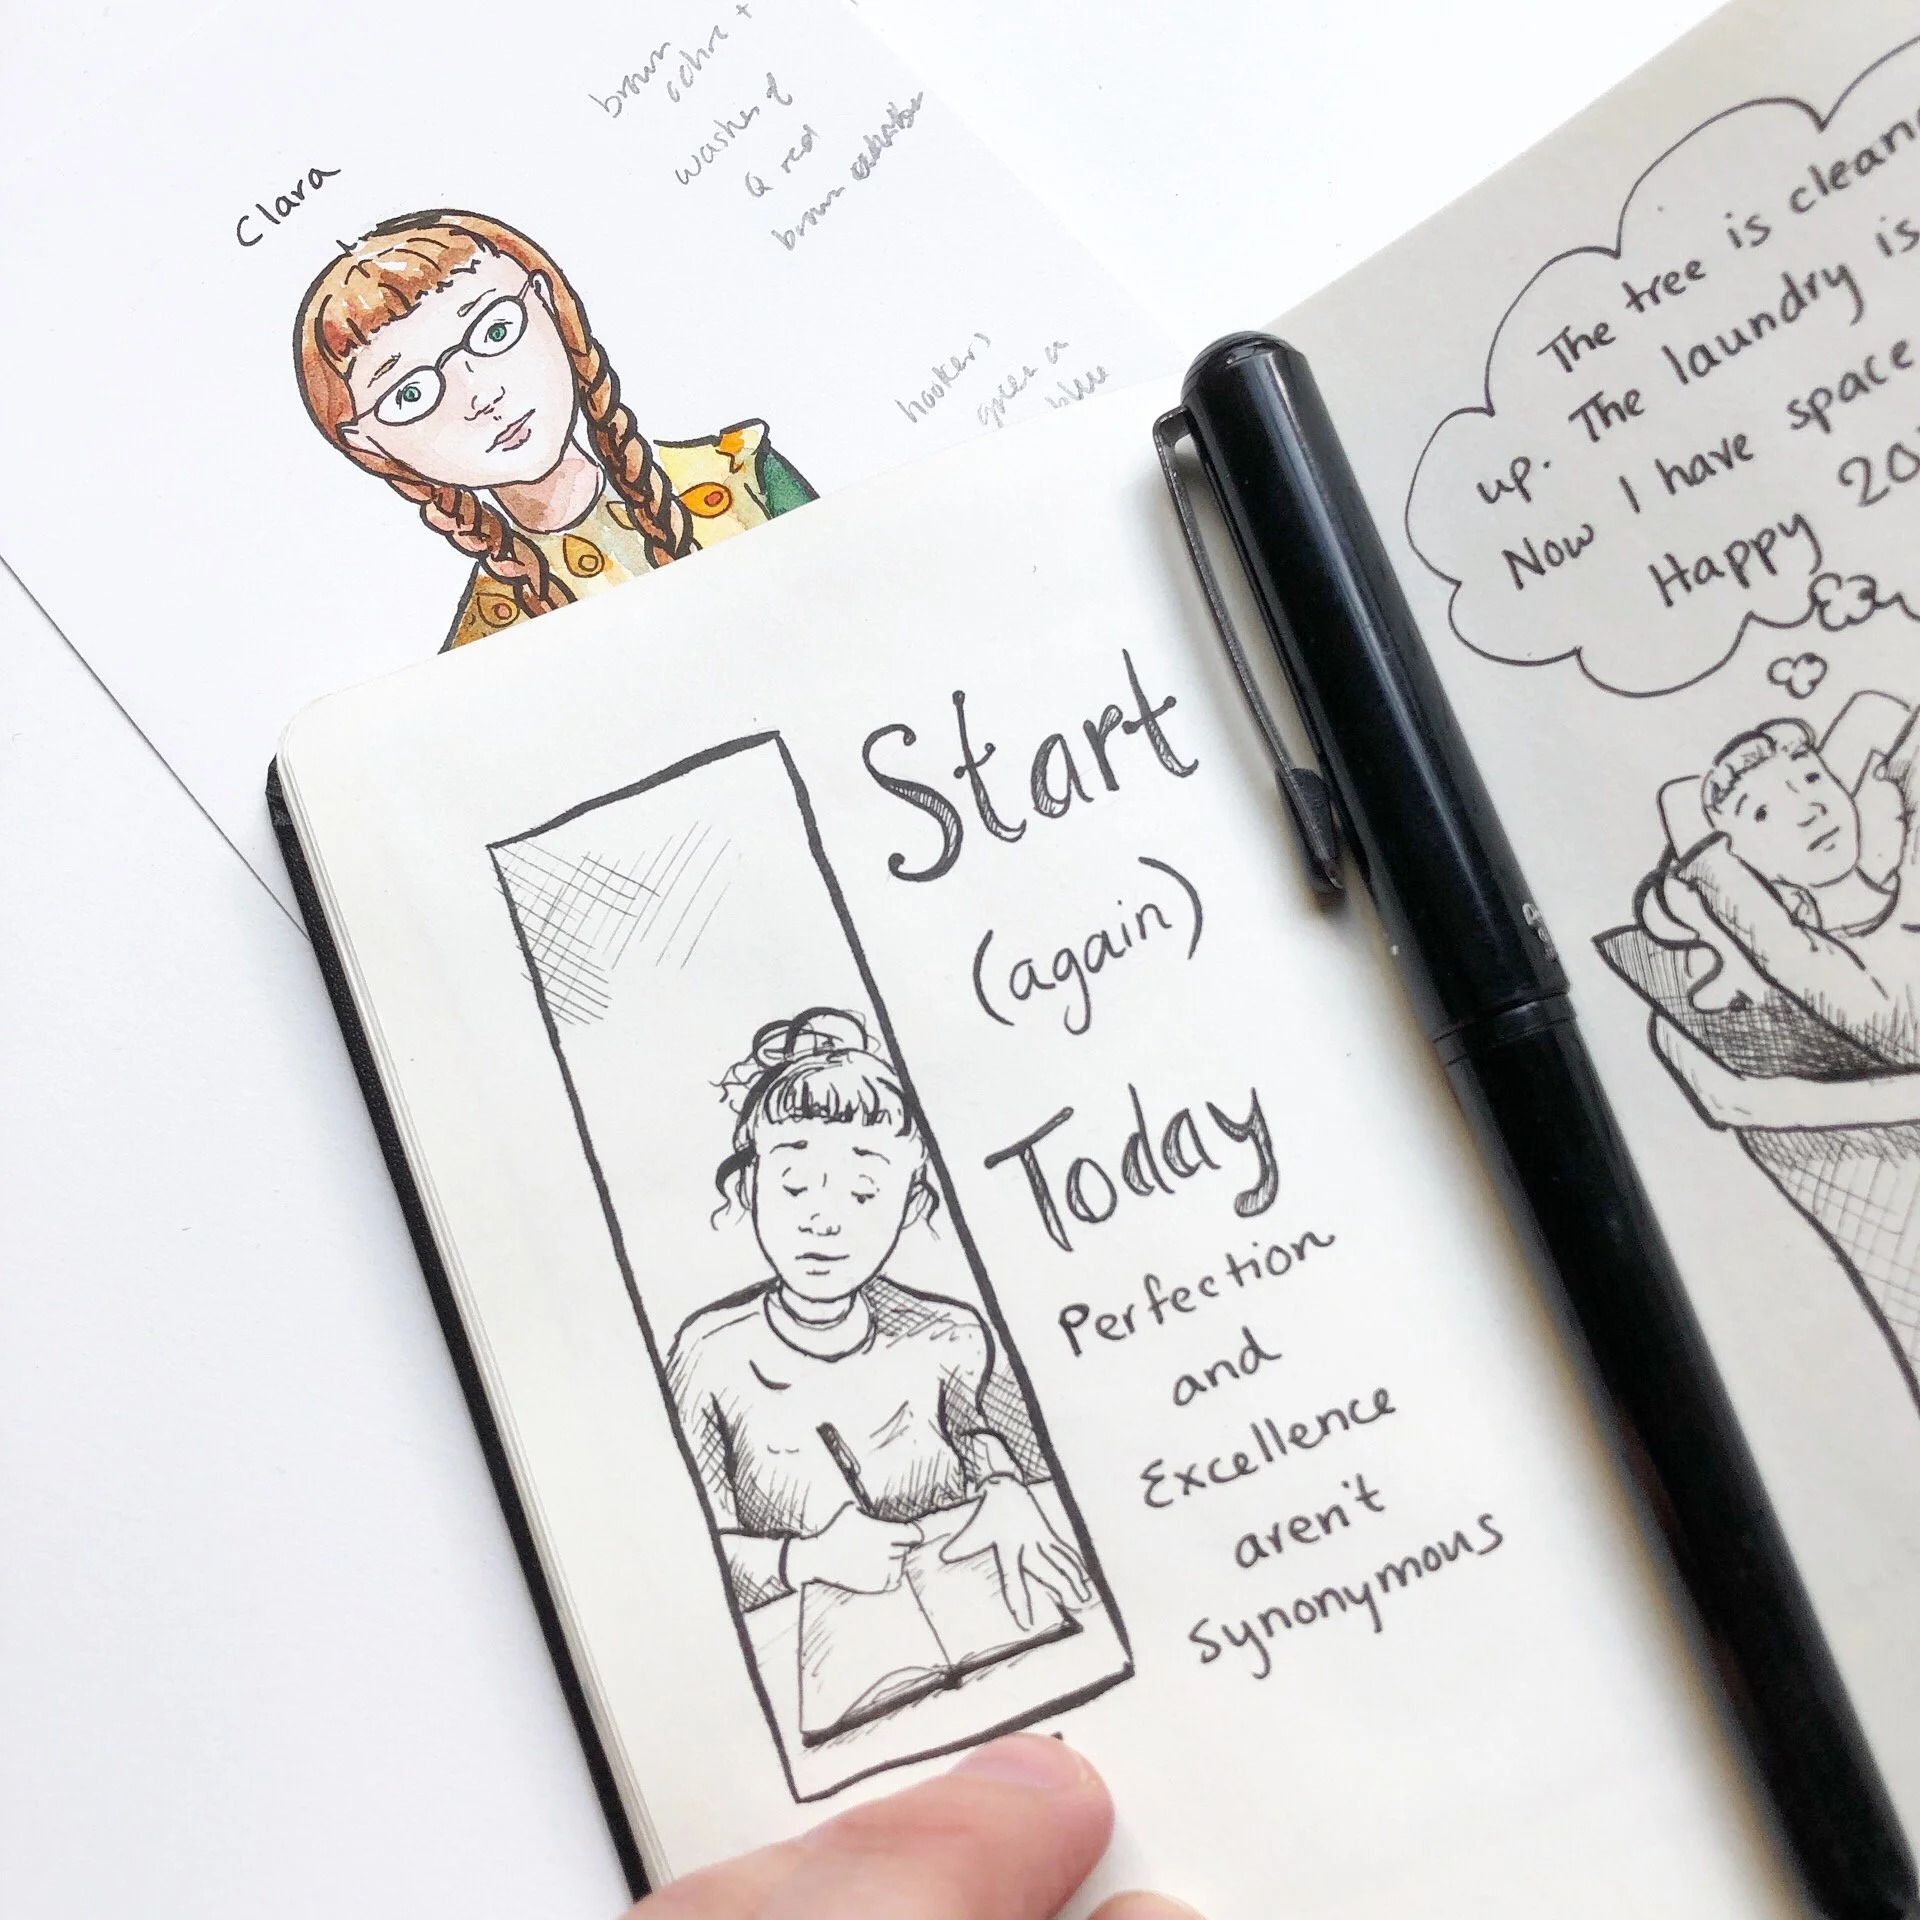 Clara
brown
ochre +
washes of
Q red
brown
hookers
green a
blue
Start
(again)
Today
Perfection
and
Excellence
aren't
synonymous
The tree is
up. The laundry is
Now I have space
Happy